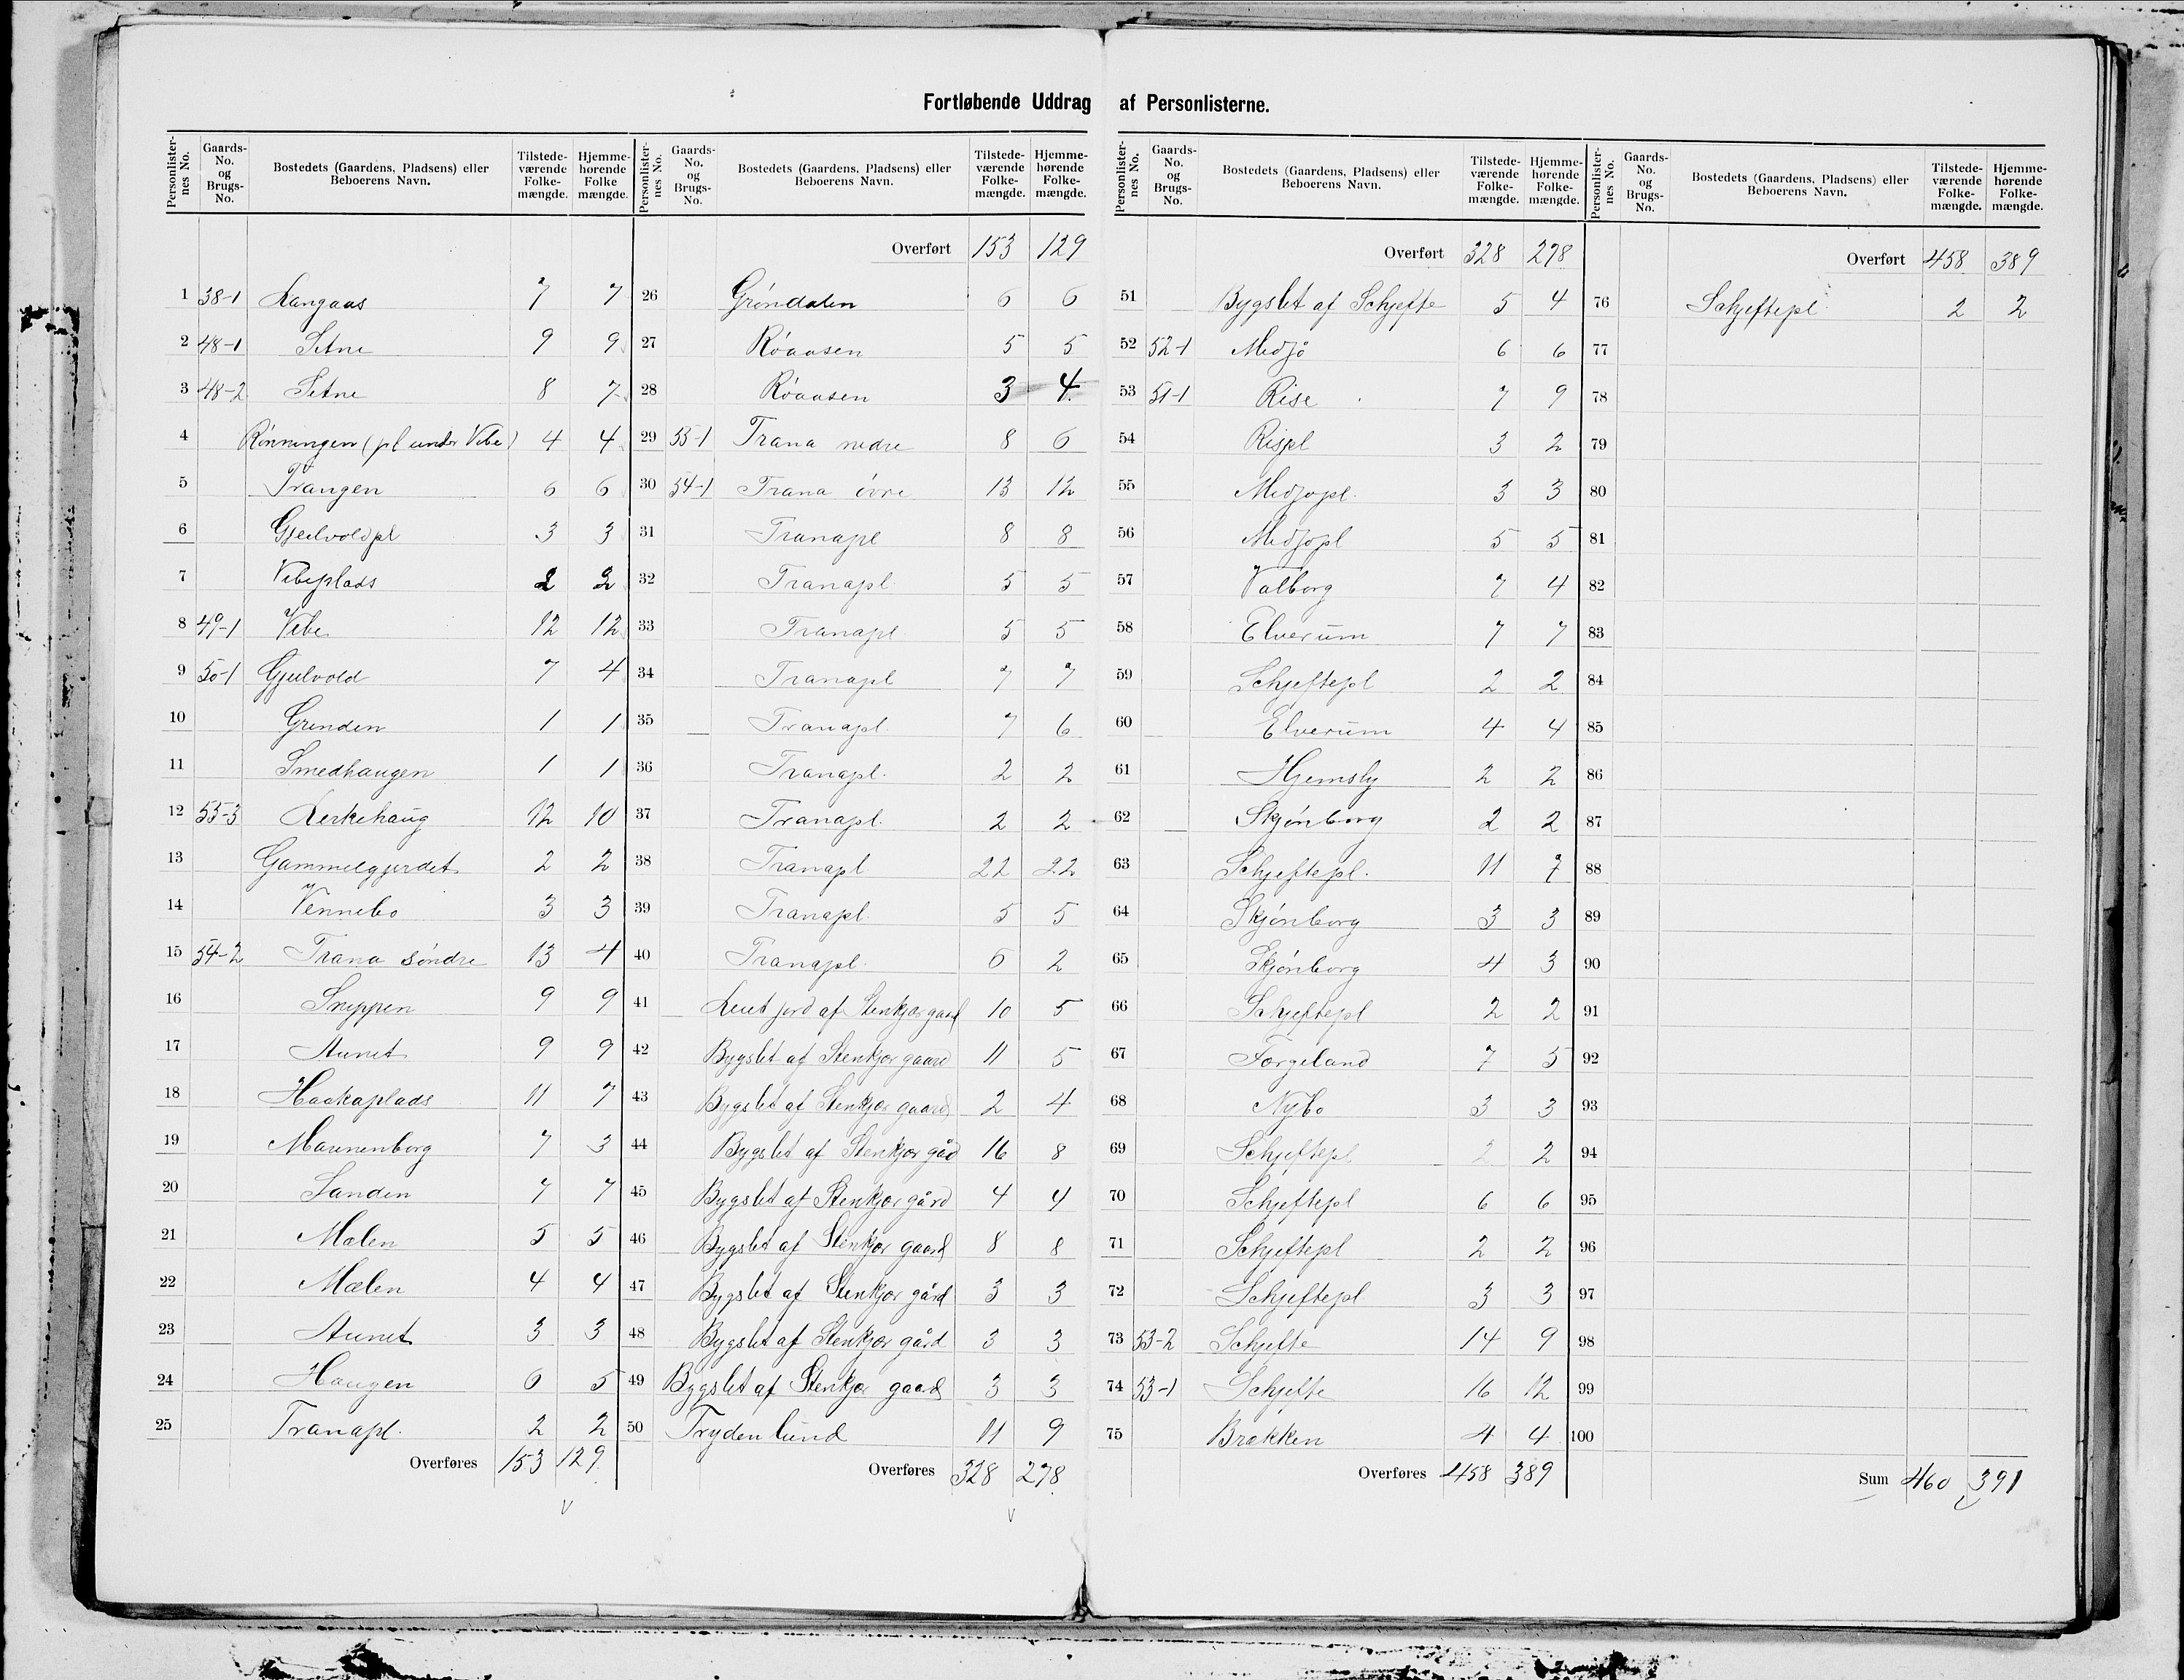 Fortløbende Uddrag af Personlisterne.
Personlister-nes No. | Gaards-No. og Brugs-No. | Bostedets (Gaardens, Pladsens) eller Beboerens Navn. | Tilstede-værende Folke-mængde. | Hjemme-hørende Folke mængde.
1 38-1 Langaas 7 7
2 48-1 Setne 9 9
3 48-2 Setne 8 7
4 Rönningen (pl under Vibe) 4 4
5 Trangen 6 6
6 Gjeilvoldpl 3 3
7 Vibeplads 2 2
8 49-1 Vibe 12 12
9 50-1 Gjeilvold 7 4
10 Grinden 1 1
11 Smedhaugen 1 1
12 55-3 Lerkehaug 12 10
13 Gammelgjerdet 2 2
14 Vennebo 3 3
15 54-2 Trana söndre 13 4
16 Sneppen 9 9
17 Aunet 9 9
18 Haakaplads 11 7
19 Maurenborg 7 3
20 Sanden 7 7
21 Mælen 5 5
22 Mælen 4 4
23 Aunet 3 3
24 Haugen 6 5
25 Tranapl. 2 2
Overføres 153 129
Personlister-nes No. | Gaards-No. og Brugs-No. | Bostedets (Gaardens, Pladsens) eller Beboerens Navn. | Tilstede-værende Folke-mængde. | Hjemme-hørende Folke-mængde.
Overført 153 129
26 Gröndalen 6 6
27 Röaasen 5 5
28 Röaasen 3 4
29 55-1 Trana nedre 8 6
30 54-1 Trana övre 13 12
31 Tranapl 8 8
32 Tranapl. 5 5
33 Tranapl 5 5
34 Tranapl 7 7
35 Tranapl. 7 6
36 Tranapl. 2 2
37 Tranapl. 2 2
38 Tranapl 22 22
39 Tranapl. 5 5
40 Tranapl. 6 2
41 Leiet jord af Stenkjær gaard 10 5
42 Bygslet af Stenkjær gaard 11 5
43 Bygslet af Stenkjær gaard 2 4
44 Bygslet af Stenkjær gård 16 8
45 Bygslet af Stenkjær gård 4 4
46 Bygslet af Stenkjær gaard 8 8
47 Bygslet af Stenkjær gård 3 3
48 Bygslet af Stenkjær gård 3 3
49 Bygslet af Stenkjær gaard 3 3
50 Trydenlund 11 9
Overføres 328 278
Personlister-nes No. | Gaards-No. og Brugs-No. | Bostedets (Gaardens, Pladsens) eller Beboerens Navn. | Tilstede-værende Folke-mængde. | Hjemme-hørende Folke-mængde.
Overført 328 278
51 Bygslet af Schjefte 5 4
52 52-1 Midjö 6 6
53 51-1 Rise 7 9
54 Rispl 3 2
55 Midjopl. 3 3
56 Midjopl 5 5
57 Valborg 7 4
58 Elverum 7 7
59 Schjeftepl 2 2
60 Elverum 4 4
61 Hjemsly 2 2
62 Skjönborg 2 2
63 Schjeftepl. 11 7
64 Skjönborg 3 3
65 Skjönborg 4 3
66 Schjeftepl 2 2
67 Forgeland 7 5
68 Nybo 3 3
69 Schjeftepl 2 2
70 Schjeftepl 6 6
71 Schjeftepl 2 2
72 Schjeftepl 3 3
73 53-2 Schjefte 14 9
74 53-1 Schjefte 16 12
75 Brækken 4 4
Overføres 458 389
Personlister-nes No. | Gaards-No. og Brugs-No. | Bostedets (Gaardens, Pladsens) eller Beboerens Navn. | Tilstede-værende Folke-mængde. | Hjemme-hørende Folke-mængde.
Overført 458 389
76 Schjeftepl 2 2
77
78
79
80
81
82
83
84
85
86
87
88
89
90
91
92
93
94
95
96
97
98
99
100
Sum 460 391